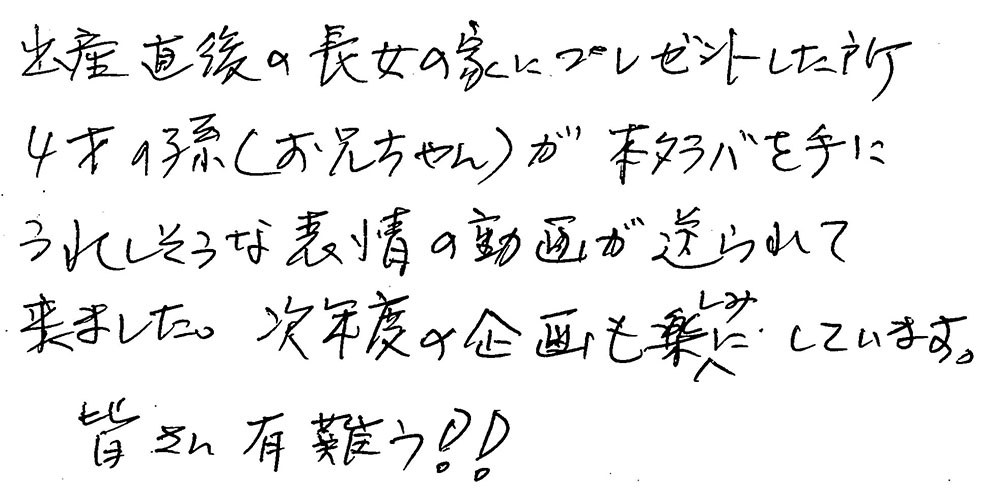 出産直後の長女の家にプレゼントした所
4才の孫(お兄ちゃん)が本タラバを手に
うれしそうな表情の動画が送られて
来ました。次年度の企画も楽しみにしています。
皆さん有難う!!